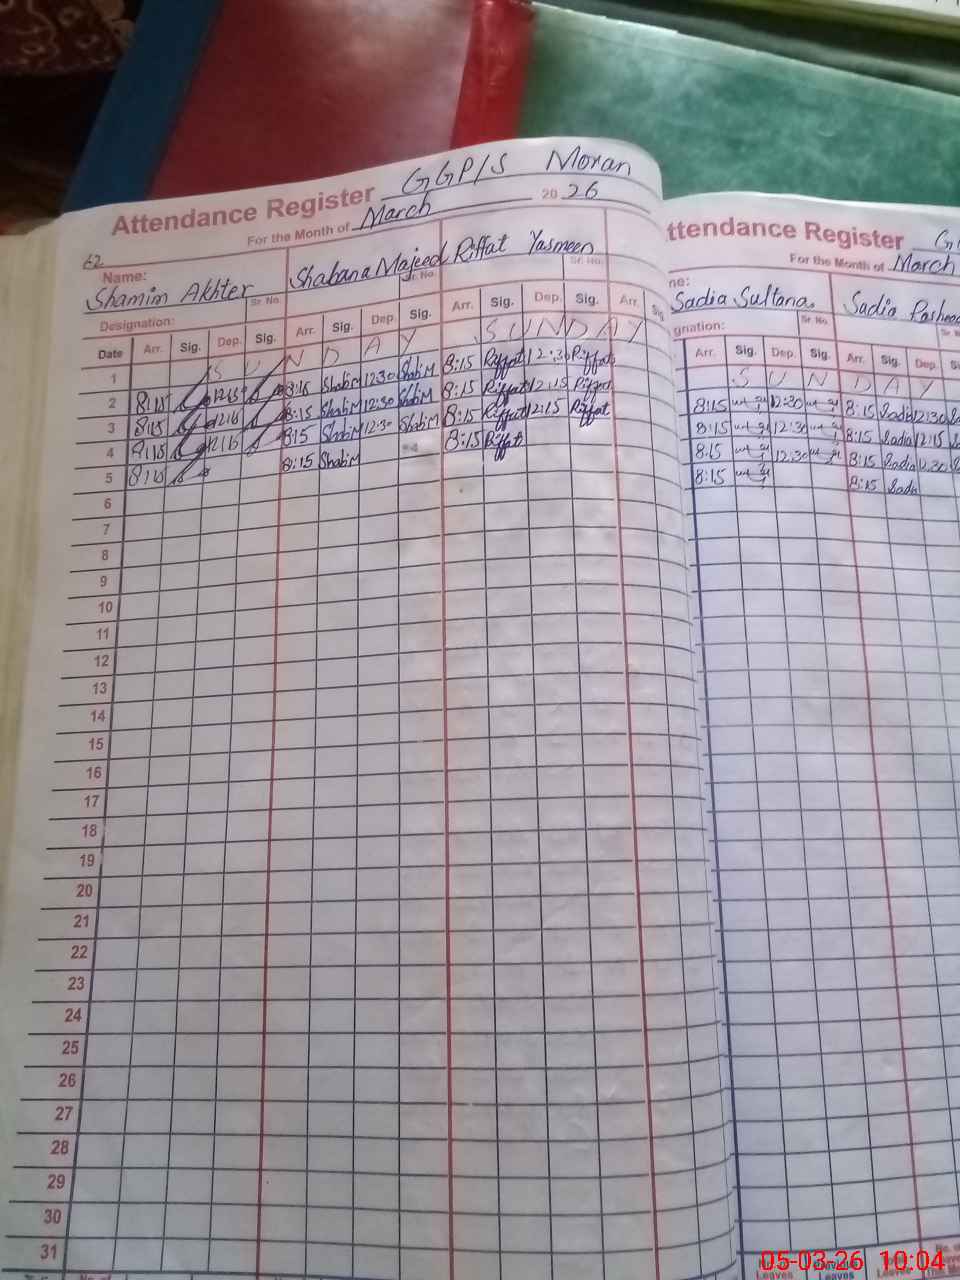 Attendance Register GGP/S Moran
For the Month of March 2026
62
Name: Shamim Akhter Sr. No. Shabana Majeed Sr. No. Riffat Yasmeen Sr. No.
Designation:
Date Arr. Sig. Dep. Sig. Arr. Sig. Dep. Sig. Arr. Sig. Dep. Sig. Arr. Sig.
1 S U N D A Y S U N D A Y
2 8:15 12:15 8:15 Shabi M 12:30 Shabi M 8:15 Riffat 12:30 Riffat
3 8:15 12:15 8:15 Shabi M 12:30 Shabi M 8:15 Riffat 12:15 Riffat
4 8:15 12:15 8:15 Shabi M 12:30 Shabi M 8:15 Riffat 12:15 Riffat
5 8:15 8:15 Shabi M 8:15 Riffat
6
7
8
9
10
11
12
13
14
15
16
17
18
19
20
21
22
23
24
25
26
27
28
29
30
31
ttendance Register
For the Month of March
ne: Sadia Sultana Sr. No. Sadia
gnation:
Arr. Sig. Dep. Sig. Arr. Sig. Dep.
S U N D A Y
8:15 12:30 8:15 Sadia 12:30
8:15 12:30 8:15 Sadia 12:15
8:15 12:30 8:15 Sadia 12:30
8:15 8:15 Sadi
Leaves Leaves Leaves
05-03-26 10:04